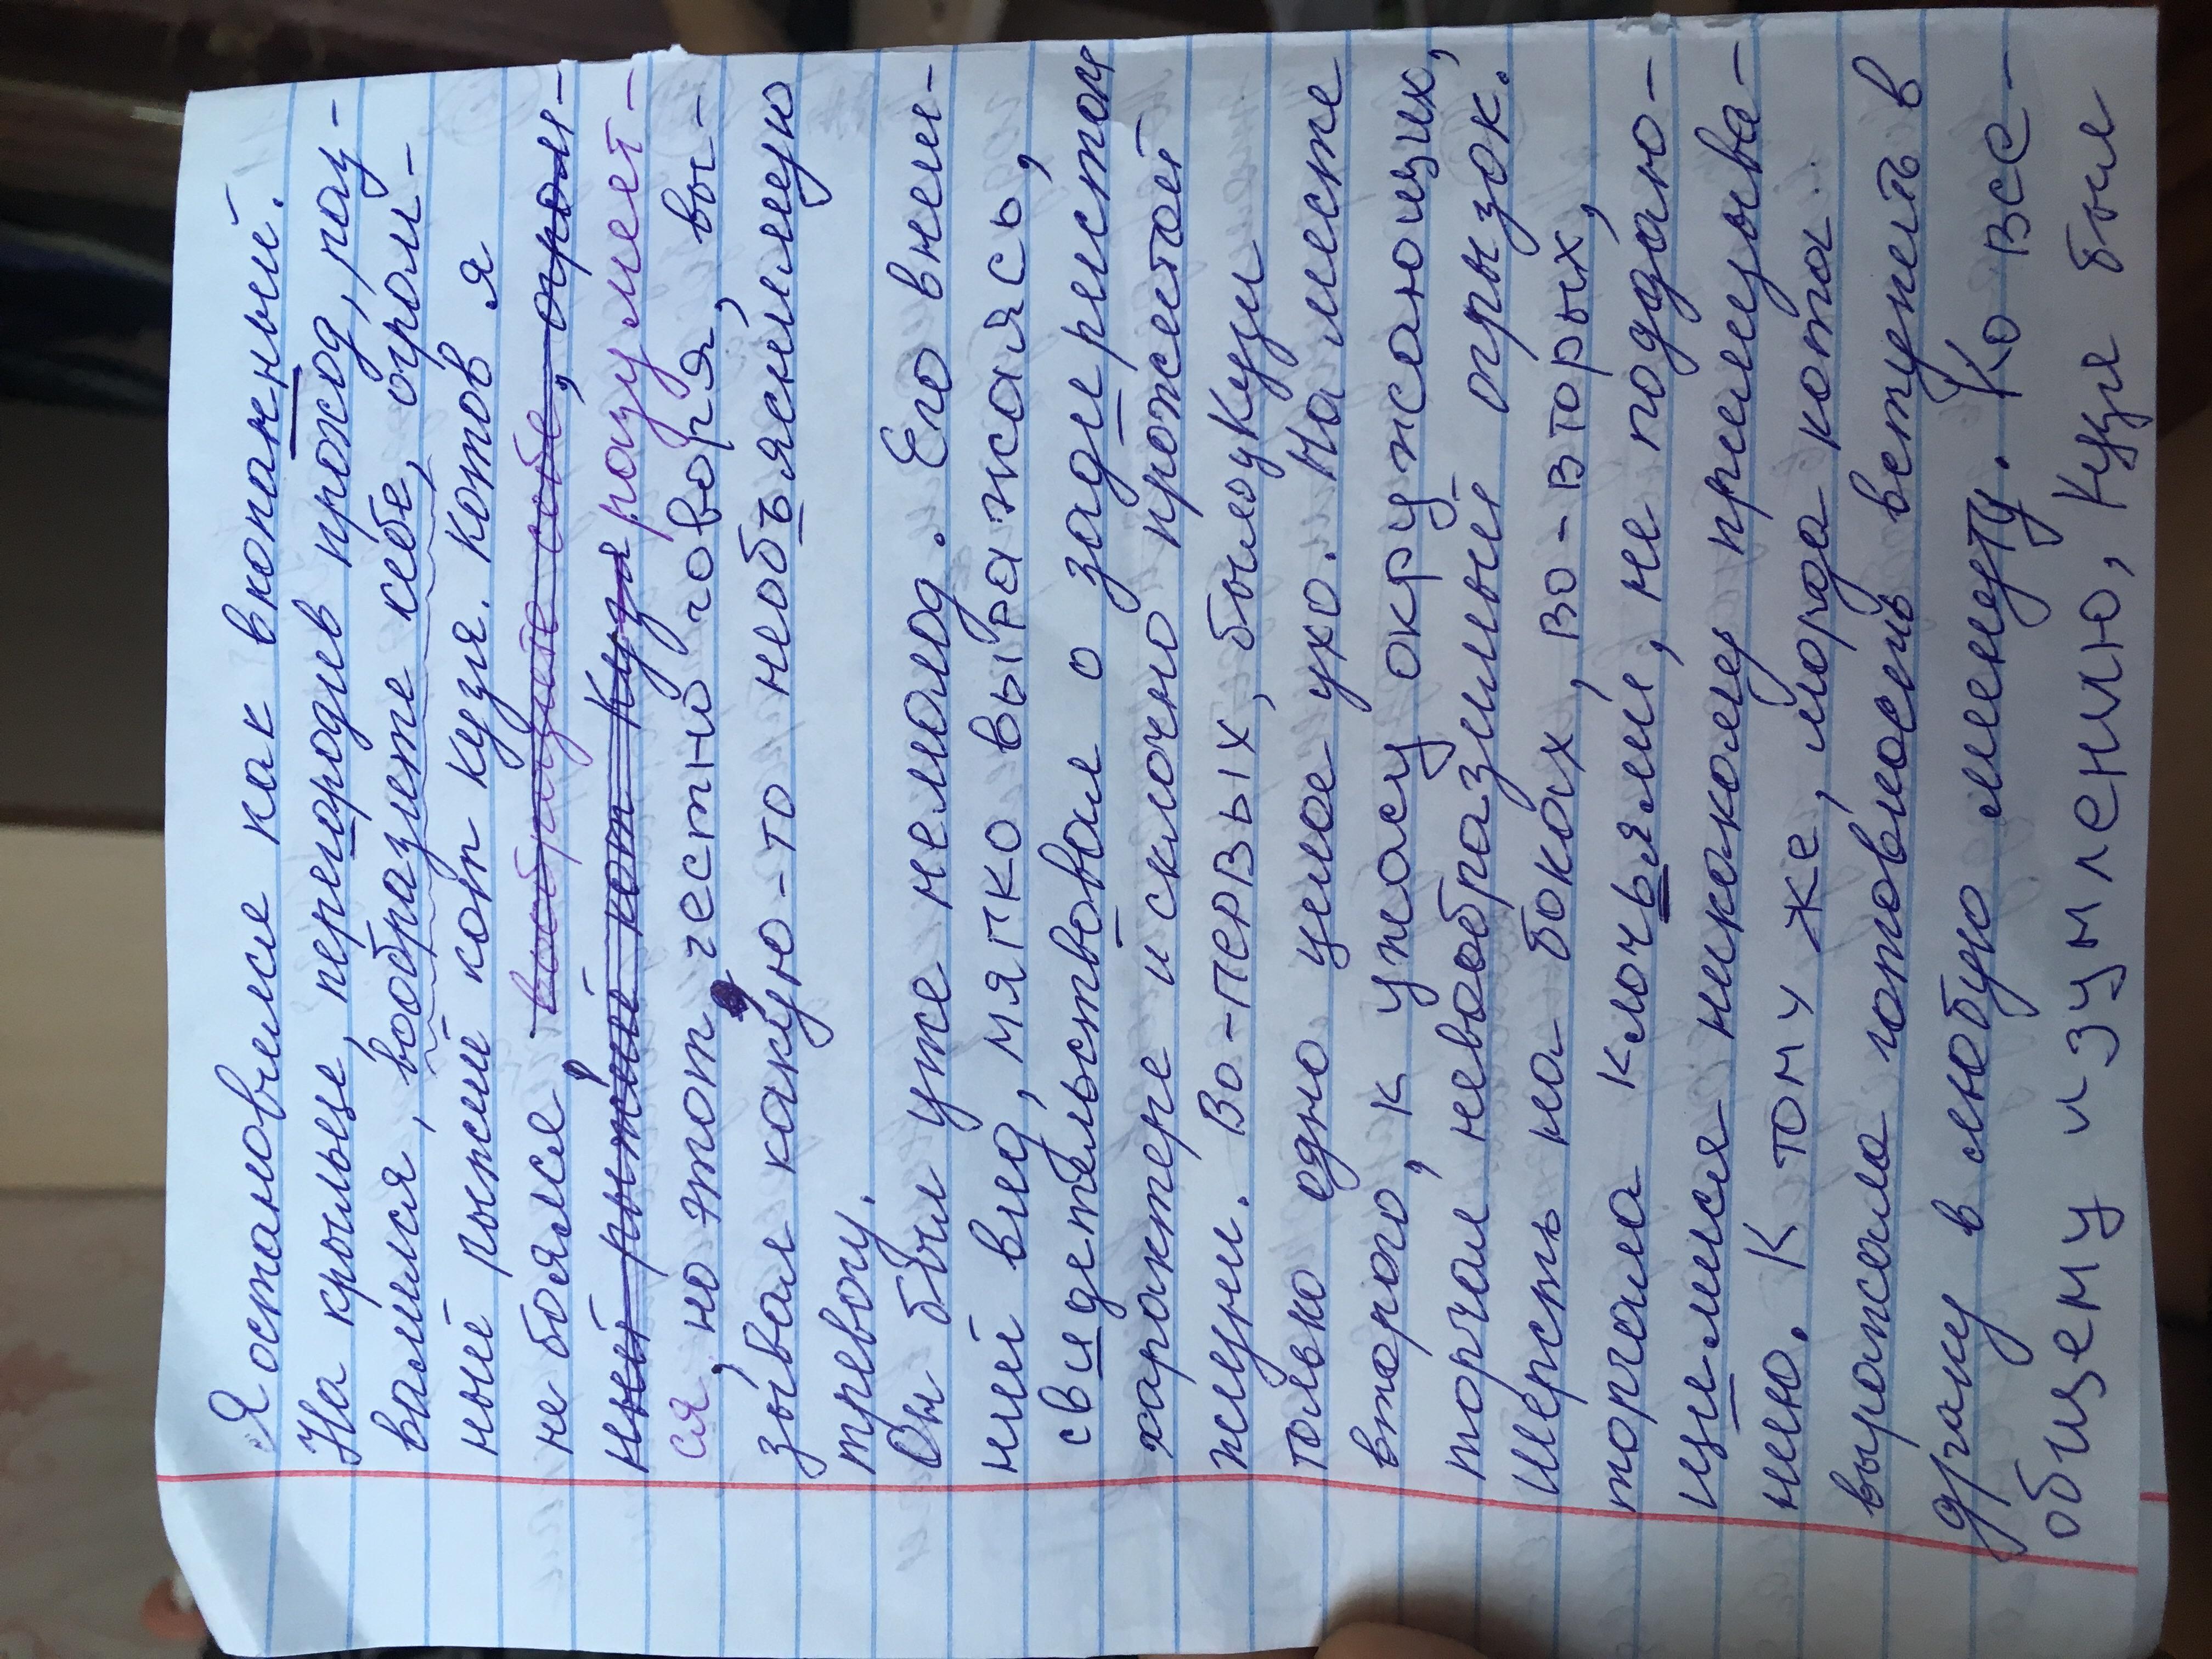 Я остановился как вкопанный.
На крыльце, перегородив проход, раз-
валился, вообразите себе, огром-
ный рыжий кот Кузя. Котов я
не боялся, вообразите себе, огром-
ный рыжий кот Кузя разумеет-
ся, но этот, честно говоря, вы-
зывал какую-то необъяснимую
тревогу.
Он был уже немолод. Его внеш-
ний вид, мягко выражаясь,
свидетельствовал о задиристом
характере и склочно прожетой
жизни. Во-первых, был у Кузи
только одно целое ухо. На месте
второго, к ужасу окружающих,
торчал невообразимый огрызок.
Шерсть на боках, во-вторых,
торчала клочьями, не поддаю-
щимися никакому причёсыва-
нию. К тому же, морда кота
выражала готовность вступить в
драку в любую минуту. Ко все-
общему изумлению, Кузя был